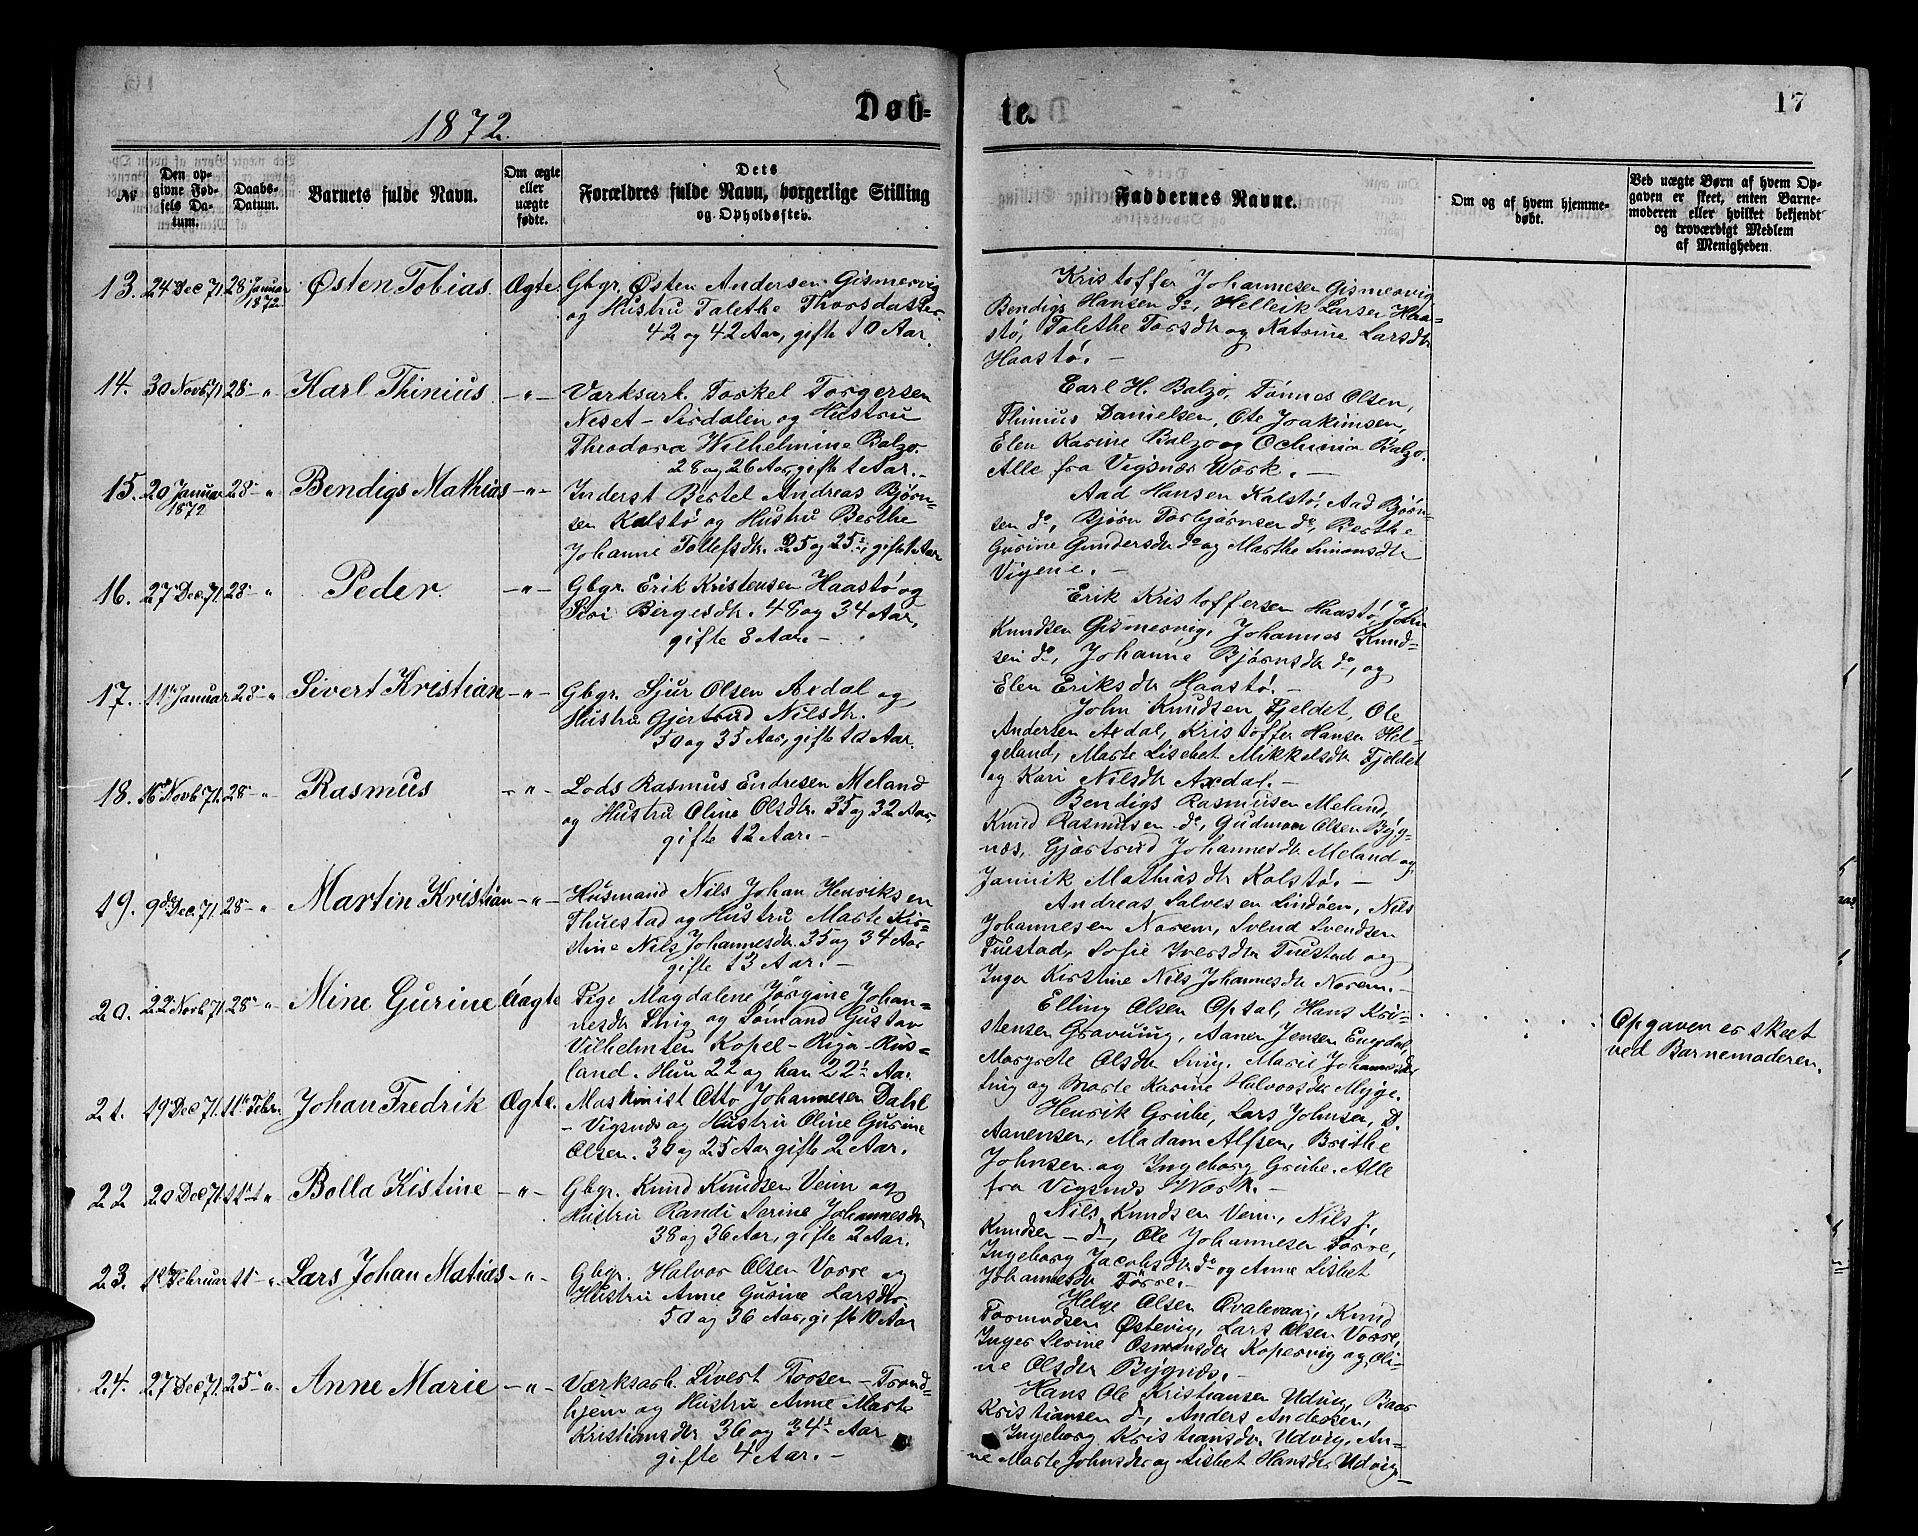 1872.
Døb-
te.
17
No
Den op-
givne Fød-
sels Da-
tum.
Daabs-
Datum.
Barnets fulde Navn.
Om ægte
eller
uægte
fødte.
Dets
Forældres fulde Navn, borgerlige Stilling
og Opholdssted.
Faddernes Navne.
Om og af hvem hjemme-
døbt.
Ved uægte Børn af hvem Op-
gaven er skeet, enten Barne-
moderen eller hvilket bekjendt
og troværdigt Medlem
af Menigheden.
13. 24 Dec 71 28 Januar 1872 Østen Tobias. Ægte.
Gbgr. Østen Andersen Gismervig
og Hustru Talethe Thorsdatter
42 og 42 Aar, gifte 10 Aar.
Kristoffer Johannesen Gismervig
Bendigs Hansen do, Helleik Larsen Haa-
stø, Talethe Torsdtr og Katrine Larsdtr
Haastø. -
14. 30 Novb 71 28 - " Karl Thinius - " -
Værksarb. Torkel Torgersen
Neset - Sirdalen og Hustru
Theodora Wilhelmine Balzo.
28 og 26 Aar, gift 1 Aar. -
Carl H. Balzo, Tønnes Olsen,
Thinius Danielsen, Ote Joakimsen,
Elen Karine Balzo og Ochinia Balzo.
Alle fra Vigsnæs Værk. -
15. 20 Januar 1872 28 - " Bendigs Mathias - " -
Inderst Bertel Andreas Bjørn-
sen Kolstø og Hustru Berthe
Johanne Tollefsdtr. 25 og 25, gift 1 Aar
Aad Hansen Kalstø, Aad Bjørn-
sen do, Bjørn Torbjørnsen do, Berthe
Gurine Gundersdtr do og Marthe Simonsdtr
Vigene. -
16. 27 Dec. 71 28 - " Peder - " -
Gbgr. Erik Kristensen Haastø og
Siri Bergesdtr. 48 og 34 Aar,
gifte 8 Aar. -
Erik Kristoffersen Haastø, John
Knudsen Gismervig, Johannes Knud-
sen do, Johanne Bjørnsdtr do, og
Elen Eriksdtr Haastø. -
17. 11te Januar 28 - " Sivert Kristian - " -
Gbgr. Sjur Olsen Axdal og
Hustru Gjertrud Nilsdtr.
50 og 35 Aar, gifte 10 Aar.
John Knudsen Fjeldet, Ole
Andersen Axdal, Kristoffer Hansen Hel-
geland, Marte Lisebet Mikkelsdtr Fjeldet
og Kari Nilsdtr Axdal. -
18. 16 Novb 71. 28 - " Rasmus - " -
Lods Rasmus Endresen Meland
og Hustru Oline Olsdtr. 35 og 32 Aar,
gifte 12 Aar. -
Bendigs Rasmusen Meland,
Knud Rasmusen do, Gudmon Olsen Byg-
næs, Gjærtrud Johannesdtr Meland og
Jannik Mathiasdtr Kolstø. -
19. 9de Dec. 71 28 - " Martin Kristian - " -
Husmand Nils Johan Henriksen
Thuestad og Hustru Marte Kir-
stine Nils Johannesdtr. 35 og 34 Aar
gifte 13 Aar. -
Andreas Salvesen Lindøen, Nils
Johannesen Norem, Svend Svendsen
Tuestad, Sofie Iversdtr Tuestad og
Inga Kirstine Nils Johannesdtr Norem. -
20. 22 Novb 71 28 - " Mine Gurine Uægte
Pige Magdalene Jørgine Johan-
nesdtr Snig og Sømand Gustav
Vilhelmsen Kopel - Riga - Rus-
land. Hun 22 og han 22 Aar
Elling Olsen Optal, Hans Kri-
stensen Gravning, Aanen Jensen Engdal,
Margrete Olsdtr Snig, Marie Johannesdtr
Snig og Marte Karine Halvorsdtr Mygge.
Opgaven er skeet
ved Barnemoderen.
21. 19 Dec 71. 11te Febr. Johan Fredrik Ægte.
Maskinist Otto Johannesen Dahl
- Vigsnæs og Hustru Oline Gurine
Olsen. 30 og 25 Aar gifte 2 Aar.
Henrik Grube, Lars Johnsen, D.
Aanensen, Madam Alfsen, Brithe
Johnsen og Ingeborg Grube. Alle
fra Vigsnæs Værk. -
22 20 Dec 71 11te " Bolla Kistine - " -
Gbgr. Knud Knudsen Veim og
Hustru Randi Serine Johannesdtr
38 og 36 Aar, gifte 2 Aar.
Nils Knudsen Veim, Nils J.
Knudsen - do -, Ole Johannesen Førre,
Ingeborg Jacobsdtr do og Anne Lisbet
Johannesdtr Førre. -
23. 1te Februar 11 - " Lars Johan Matias - " -
Gbgr. Halvor Olsen Vorre og
Hustru Anne Gurine Larsdtr
50 og 36 Aar, gift 10 Aar
Helge Olsen Qvalevaag, Knud
Tormodsen Østevig, Lars Olsen Vorre,
Inger Serine Osmundsdtr Kopervig og Oli-
ne Olsdtr Bygnæs. -
24. 27 Dec 71. 25 - " Anne Marie - " -
Værksarb. Sivert Torsen - Trond-
hjem og Hustru Anne Marte
Kristiansdtr 36 og 34 Aar
gifte 4 Aar. -
Hans Ole Kristiansen Udvig, Baar
Kristiansen do, Anders Andersen,
Ingeborg Kristiansdtr Udvig, An-
ne Marte Johnsdtr og Lisbet Hansdtr Udvig -